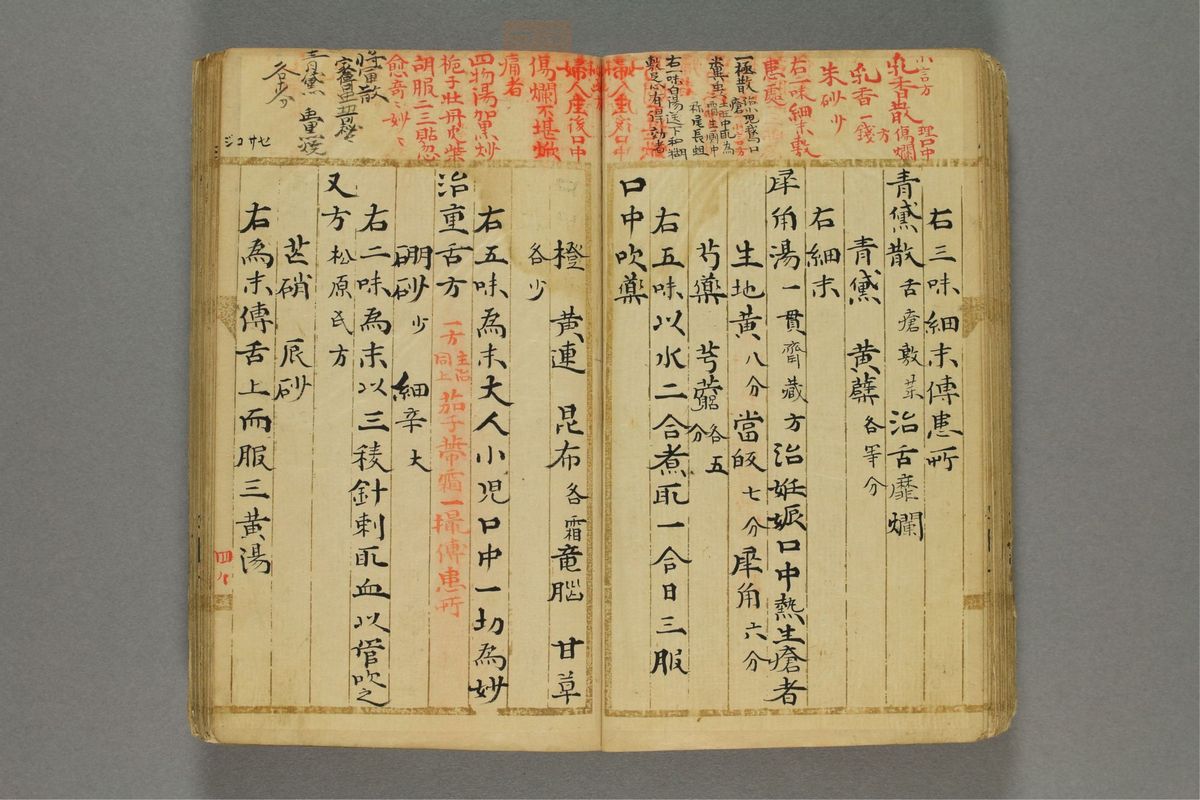 小言方
乳香散 理口中
傷爛
方
乳香一錢
朱砂少
右二味細末敷
患處
一極散
右一味白湯送下和糊
敷患心有得効者
婦人産後口中
傷爛不堪
痛者
四物湯加黒炒
梔子牡丹皮柴
胡服三三貼忽
愈奇々妙々
青黛
各等分
右三味細末傅患所
青黛散 舌瘡敷薬 治舌靡爛
青黛 黄蘗 各等分
右細末
犀角湯 一貫齊藏方 治妊娠口中熱生瘡者
生地黄 八分 當皈 七分 犀角 六分
芍藥 芎藭 各五分
右五味以水二合煮取一合日三服
口中吹藥
橙 黄連 昆布 各霜 竜脳 甘草
各少
右五味為末大人小児口中一切為妙
治重舌方 一方主治同上 茄子蔕霜一撮傅患所
硼砂 少 細辛 大
右二味為末以三稜針刺取血以管吹之
又方 松原氏方
芒硝 辰砂
右為末傅舌上而服三黄湯